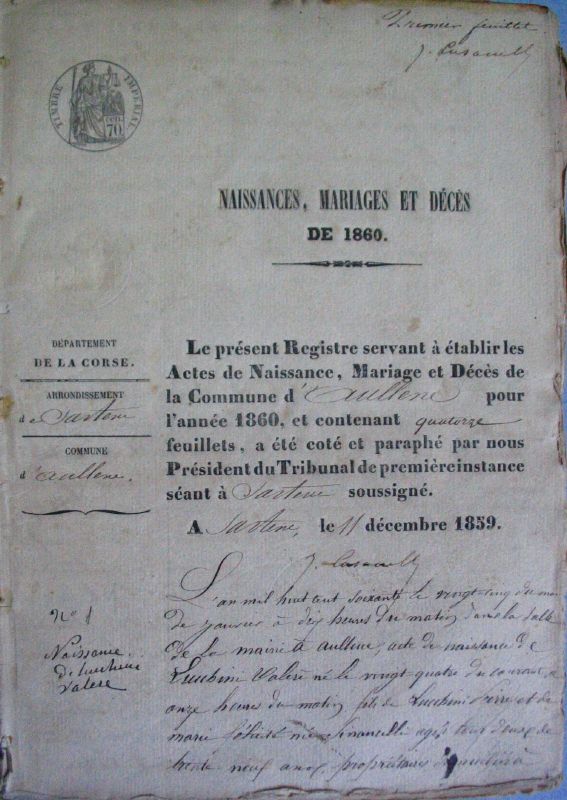 Premier feuillet
TIMBRE IMPÉRIAL
CEN.
70
NAISSANCES, MARIAGES ET DÉCÈS
DE 1860.
DÉPARTEMENT
DE LA CORSE.
ARRONDISSEMENT
de Sartene
COMMUNE
d'aullene.
Le présent Registre servant à établir les
Actes de Naissance, Mariage et Décès de
la Commune d'aullene pour
l'année 1860, et contenant quatorze
feuillets, a été coté et paraphé par nous
Président du Tribunal de première instance
séant à Sartene soussigné.
A Sartene, le 11 décembre 1859.
N° 1
Naissance
De Lucchini
Valere
L'an mil huit cent soixante le vingt-cinq du mois
de janvier à dix heures du matin dans la salle
de la mairie à aullene, acte de naissance de
Lucchini Valere né le vingt-quatre du courant, à
onze heures du matin, fils de Lucchini Pierre et de
marie félicité née agés tous deux de
trente neuf ans, propriétaires